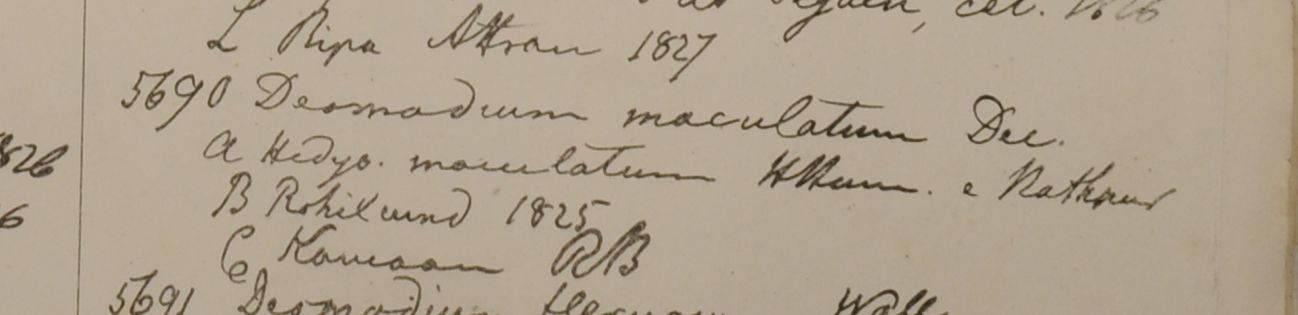 cet. 1826
L Ripa Attran 1827
5690 Desmodium maculatum Dec.
826
A Hedys. maculatum HHam. e Nathpur
B Rohilcund 1825
6
C Kamaon RB
5691 Desmodium Wall